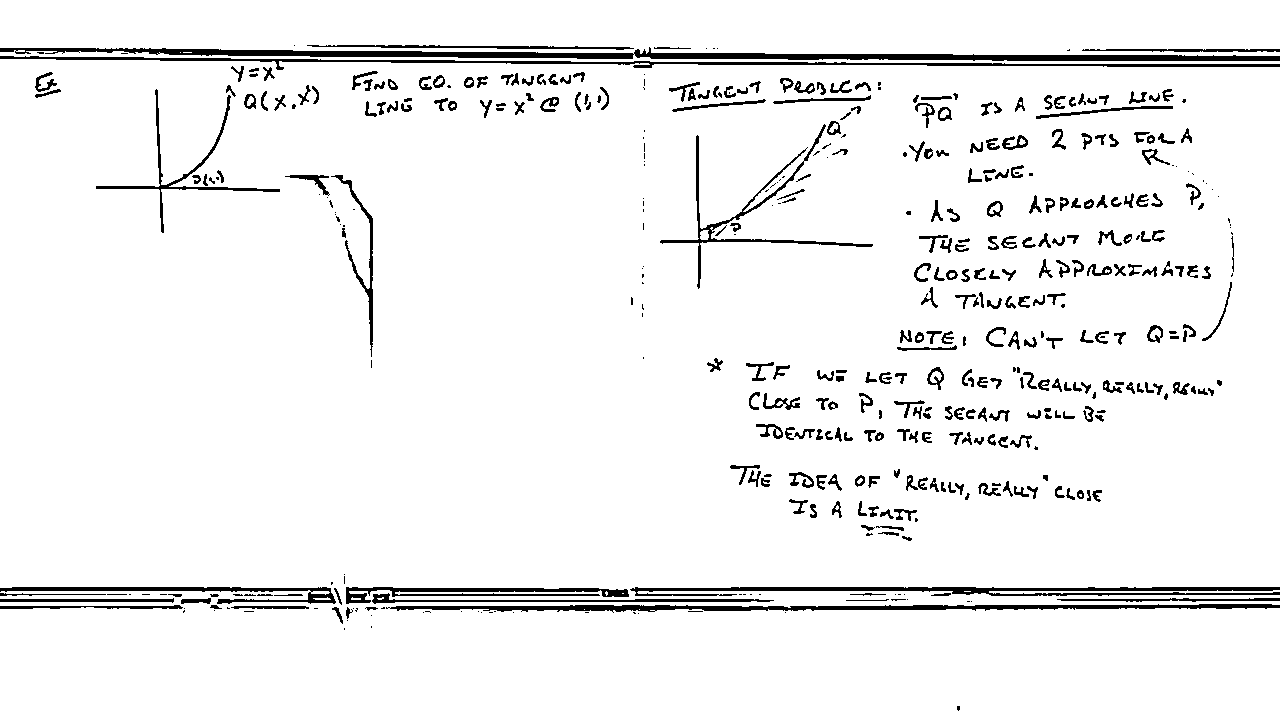 Ex
Y=X²
Q(X,X²)
P(1,1)
FIND EQ. OF TANGENT
LINE TO Y=X² @ (1,1)
TANGENT PROBLEM:
Q
P
"PQ" IS A SECANT LINE.
·YOU NEED 2 PTS FOR A
LINE.
· AS Q APPROACHES P,
THE SECANT MORE
CLOSELY APPROXIMATES
A TANGENT.
NOTE: CAN'T LET Q=P
* IF WE LET Q GET "REALLY, REALLY, REALLY"
CLOSE TO P, THE SECANT WILL BE
IDENTICAL TO THE TANGENT.
THE IDEA OF "REALLY, REALLY" CLOSE
IS A LIMIT.